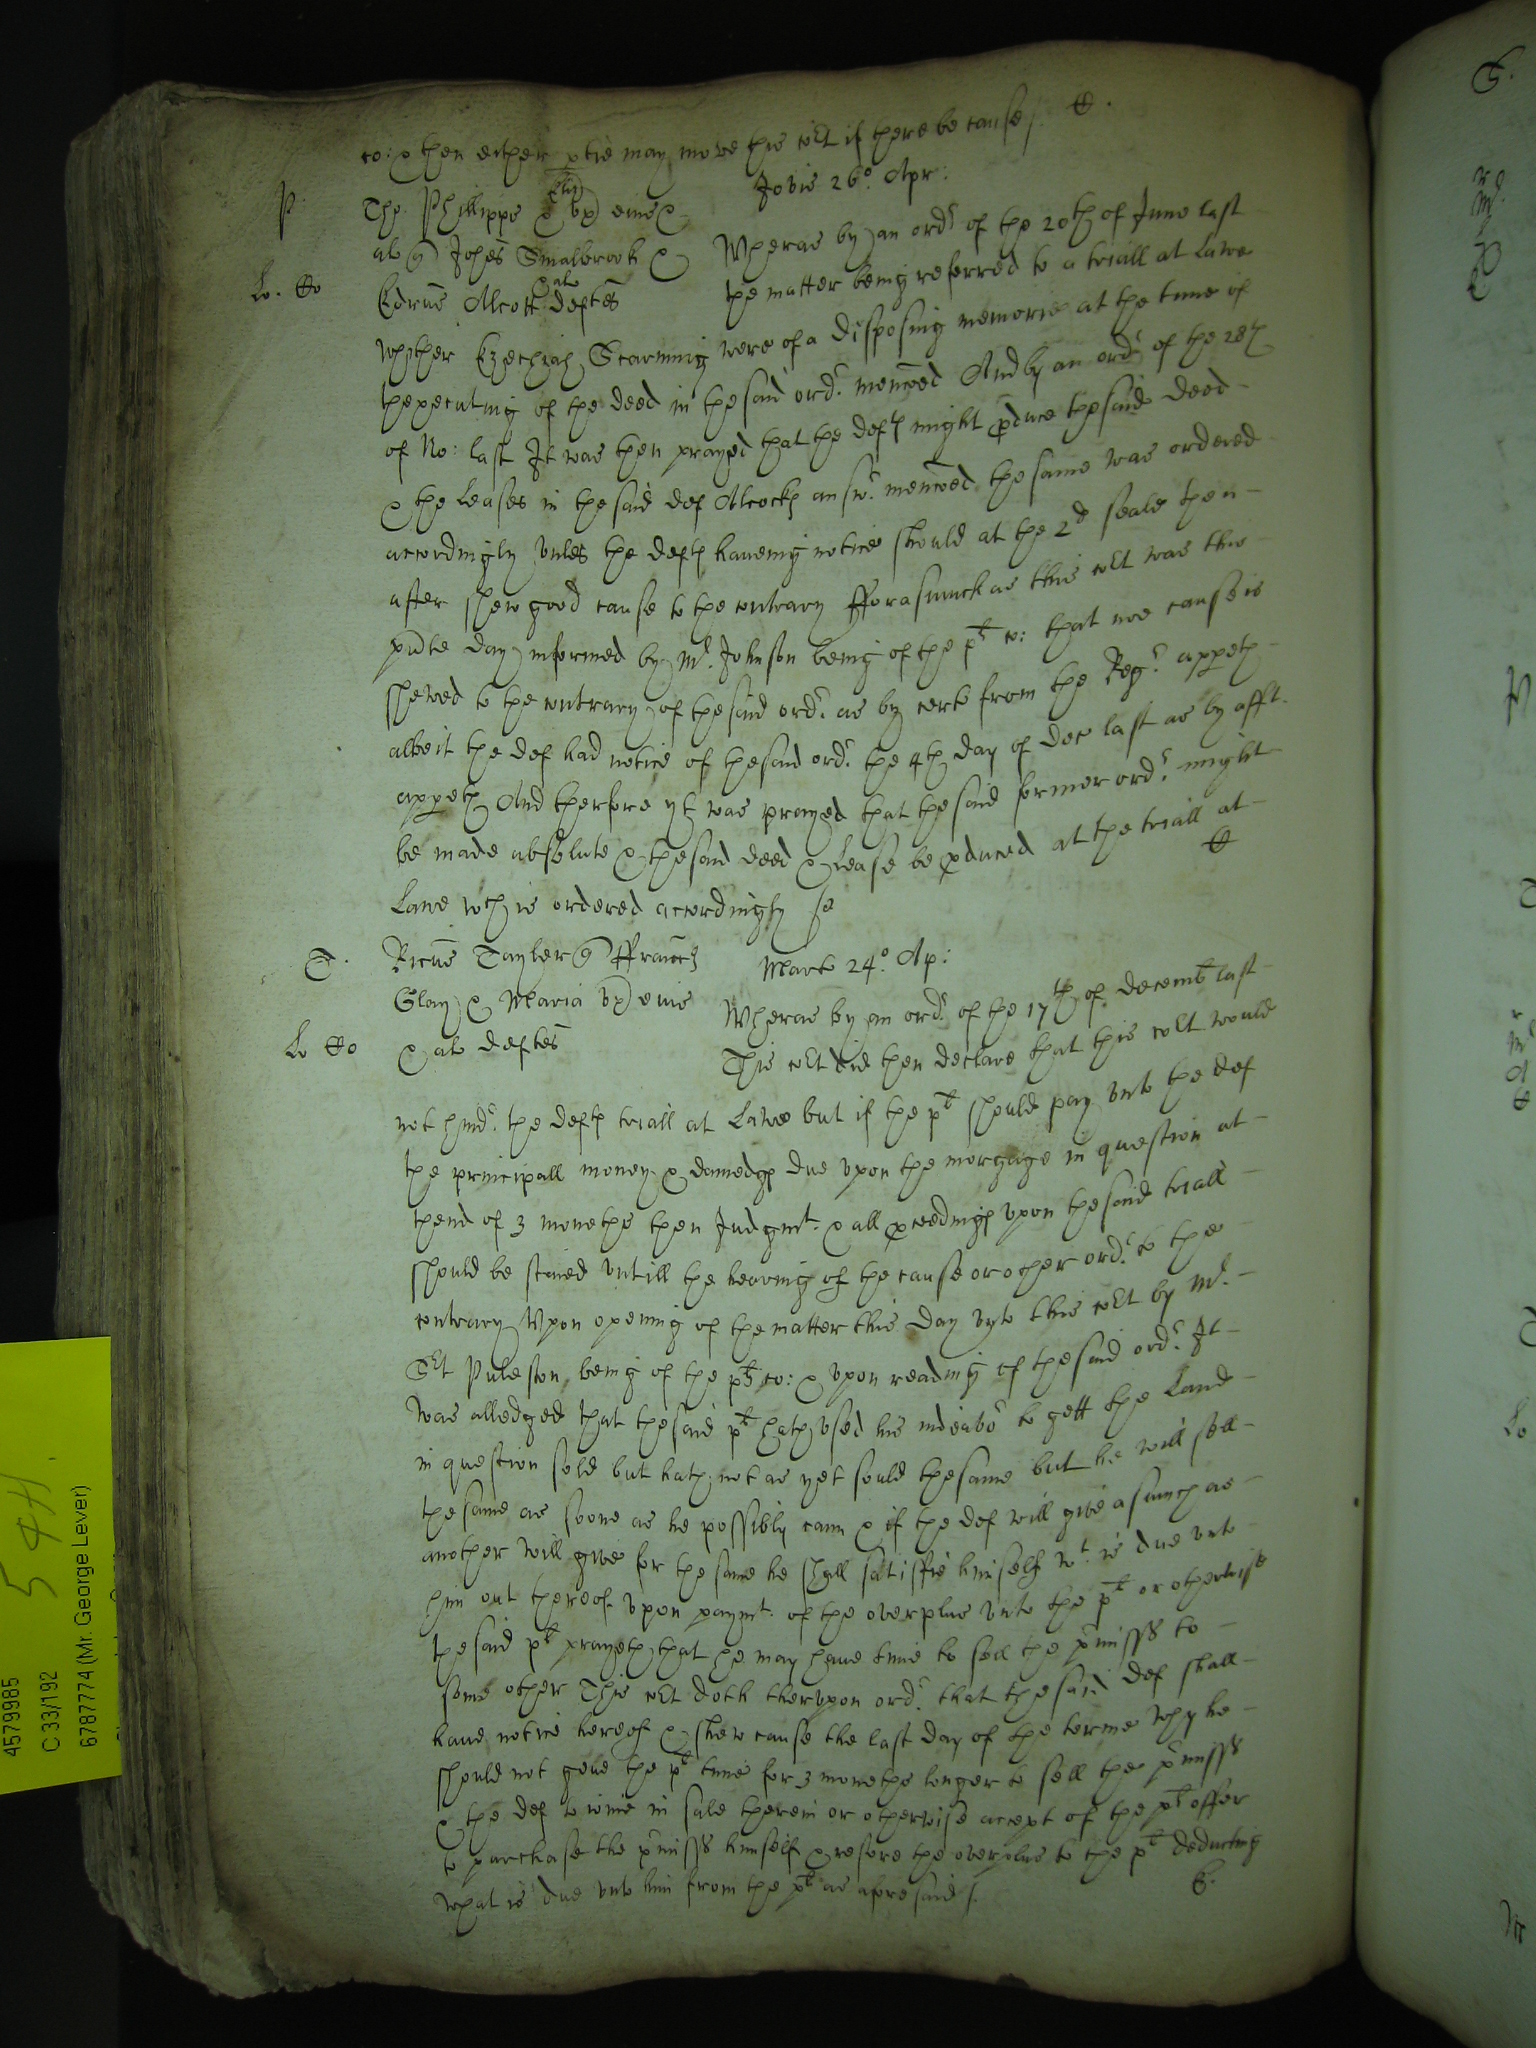 co: & then either ptie may move this co͠rt if there be cause /. &.
Jovis 26o. Apr:
P
Tho. Phillipps & Eliz ux eius &
al q Johes Smalbrook &
Lo. Co
Edrus Alcott & al deftes
Wheras by an ordr of the 20th of June last
the matter being referred to a triall at Lawe
whether Ezechiah Scarning were of a disposing memorie at the time of
thexecuting of the deed in the said ordr. menc̃oed And by an ordr of the 28th
of No: last It was then prayed that the defts might produce the said deed
& the Leases in the said def Alcocks answr. menc̃oed the same was ordered
accordingly unles the defts haveing notice should at the 2d seale then
after shew good cause to the contrary fforasmuch as this co͠rt was this
pñte day informed by Mr. Johnson being of the plt co: that noe cause is
shewed to the contrary of the said ordr. as by certe from the Regr. appeth
albeit the def had notice of the said ordr. the 4th day of Dec last as by afft.
appeth And therfore yt was prayed that the said former ordr. might
be made absolute & the said deed & lease be produced at the triall at
Lawe wch is ordered accordingly /.
T.
Ricus Tayler q ffrancs
Glay & Maria ux eius
Lo Co
& al deftes
Marts 24o. Ap:
Wheras by an ordr. of the 17th of decembr last
This co͠rt did then declare that this co͠rt would
not hindr. the defts triall at Lawe but if the plt should pay unto the def
the principall money & damedgs due upon the morgage in question at
thend of 3 moneths then Judgmt. & all proceedings upon the said triall
should be staied untill the hearing of the cause or other ordr. to the
contrary Upon opening of the matter this day unto this co͠rt by Mr.
Srt Puleston being of the plts co: & upon reading of the said ordr. It
was alledged that the said plt hath used his indeavor to gett the Land
in question sold but hath not as yet sould the same but he will sell
the same as soone as he possibly cann & if the def will give asmuch as
another will give for the same he shall satisfie himself wt. is due unto
him out thereof upon paymt. of the overplus unto the plt or otherwise
the said plt prayeth that he may have time to sell the pmisss to
some other This co͠rt doth therupon ordr. that the said def shall
have notice hereof & shew cause the last day of the terme why he
should not geve the plt time for 3 moneths longer to sell the pmisss
& the def to joine in sale therein or otherwise accept of the plts offer
to purchase the pmisss himself & restore the overplus to the plt deducting
what is due unto him from the plt as aforesaid /.
4579985
C 33/192
6787774 (Mr. George Lever)